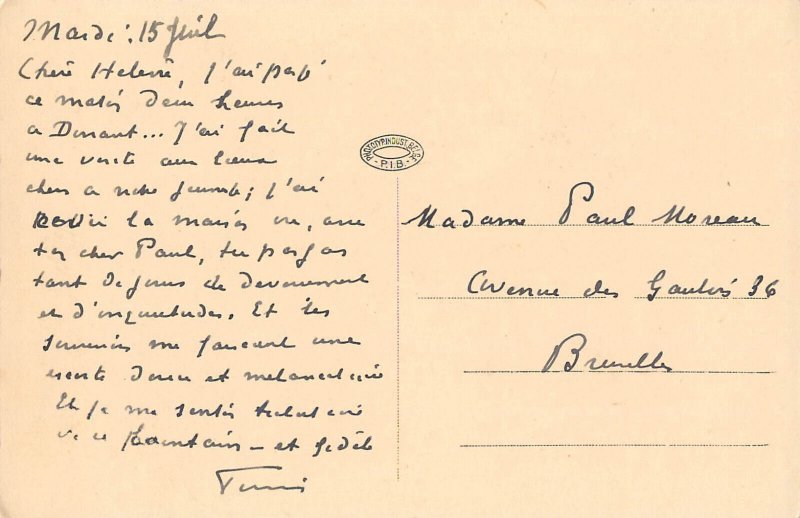 Mardi: 15 Juil
Chère Helene, j'ai passé
ce matin deux heures
a Dinant... J'ai fait
une visite aux lieux
chers a notre jeunesse; j'ai
revu la maison ou, avec
ton cher Paul, tu passas
tant de jours de devouement
et d'inquietudes. Et les
souvenirs me faisaient une
escorte douce et melancolique
Et je me sentis
vieux lointain - et fidèle
PHOTOTYP. INDUST. BELGE
- P.I.B. -
Madame Paul Moreau
Avenue des Gaulois 36
Bruxelles